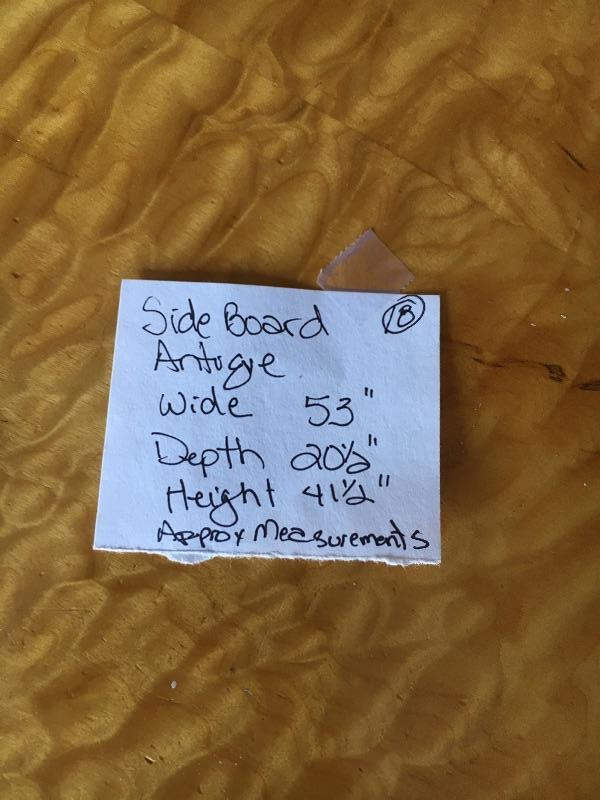 Side Board 18
Antuqye
Wide 53"
Depth 20½"
Height 41½"
Approx Measurements